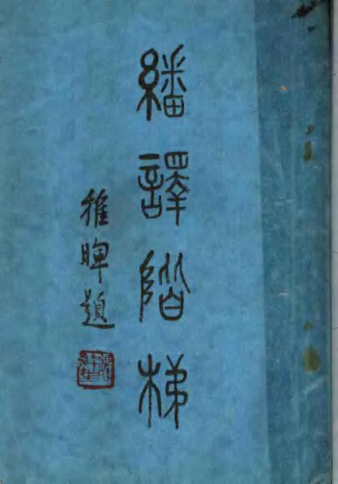 繙譯階梯
稚暉題